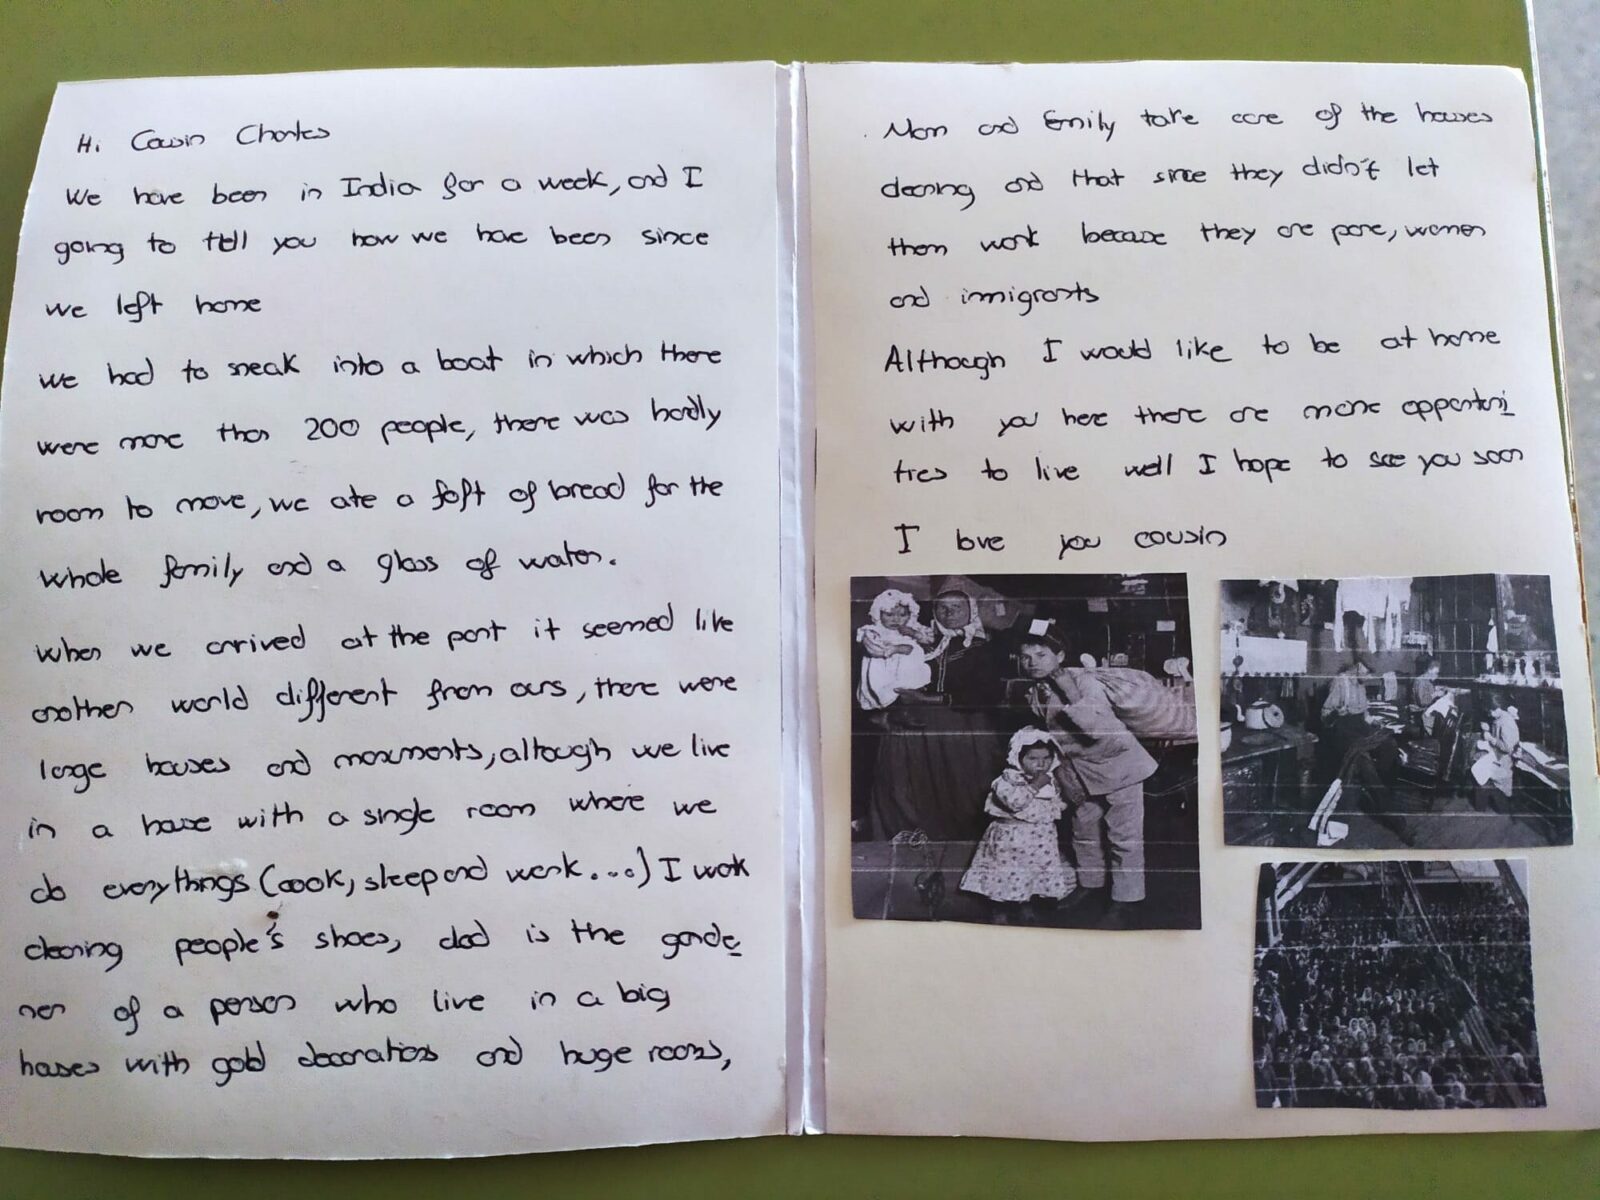 Hi Cousin Charles
We have been in India for a week, and I
going to tell you how we have been since
we left home
we had to sneak into a boat in which there
were more than 200 people, there was hardly
room to move, we ate a of bread for the
whole family and a glass of water.
when we arrived at the port it seemed like
another world different from ours, there were
large houses and monuments, although we live
in a house with a single room where we
do everythings (cook, sleep and work...) I work
cleaning people's shoes, dad is the garde
ner of a person who live in a big
houses with gold decorations and huge rooms,
Mom and Emily take care of the houses
cleaning and that since they didn't let
them work because they are pore, women
and inmigrants
Although I would like to be at home
with you here there are more opportuni
ties to live well I hope to see you soon
I love you cousin